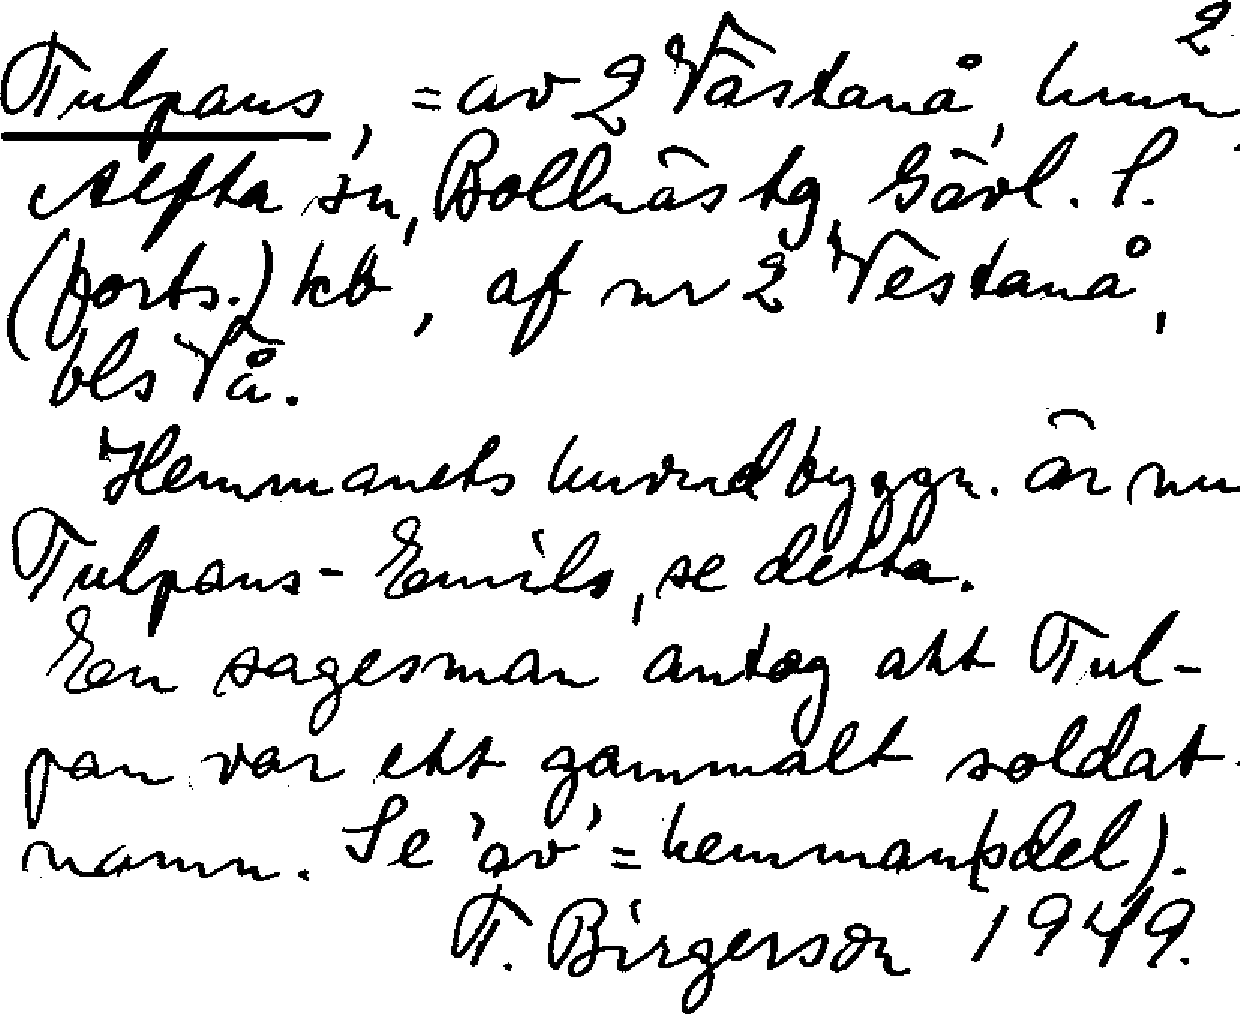 2
Tulpans, = av 2 Västanå, hmn
Alfta sn, Bollnäs tg, Gävl. l.
(forts.) kb, af nr 2 Vestanå,
bls Vå.
Hemmanets huvudbyggn. är nu
Tulpans-Emils, se detta.
En sagesman antog att Tul-
pan var ett gammalt soldat-
namn. Se 'av' = hemman(sdel).
T. Birgerson 1949.